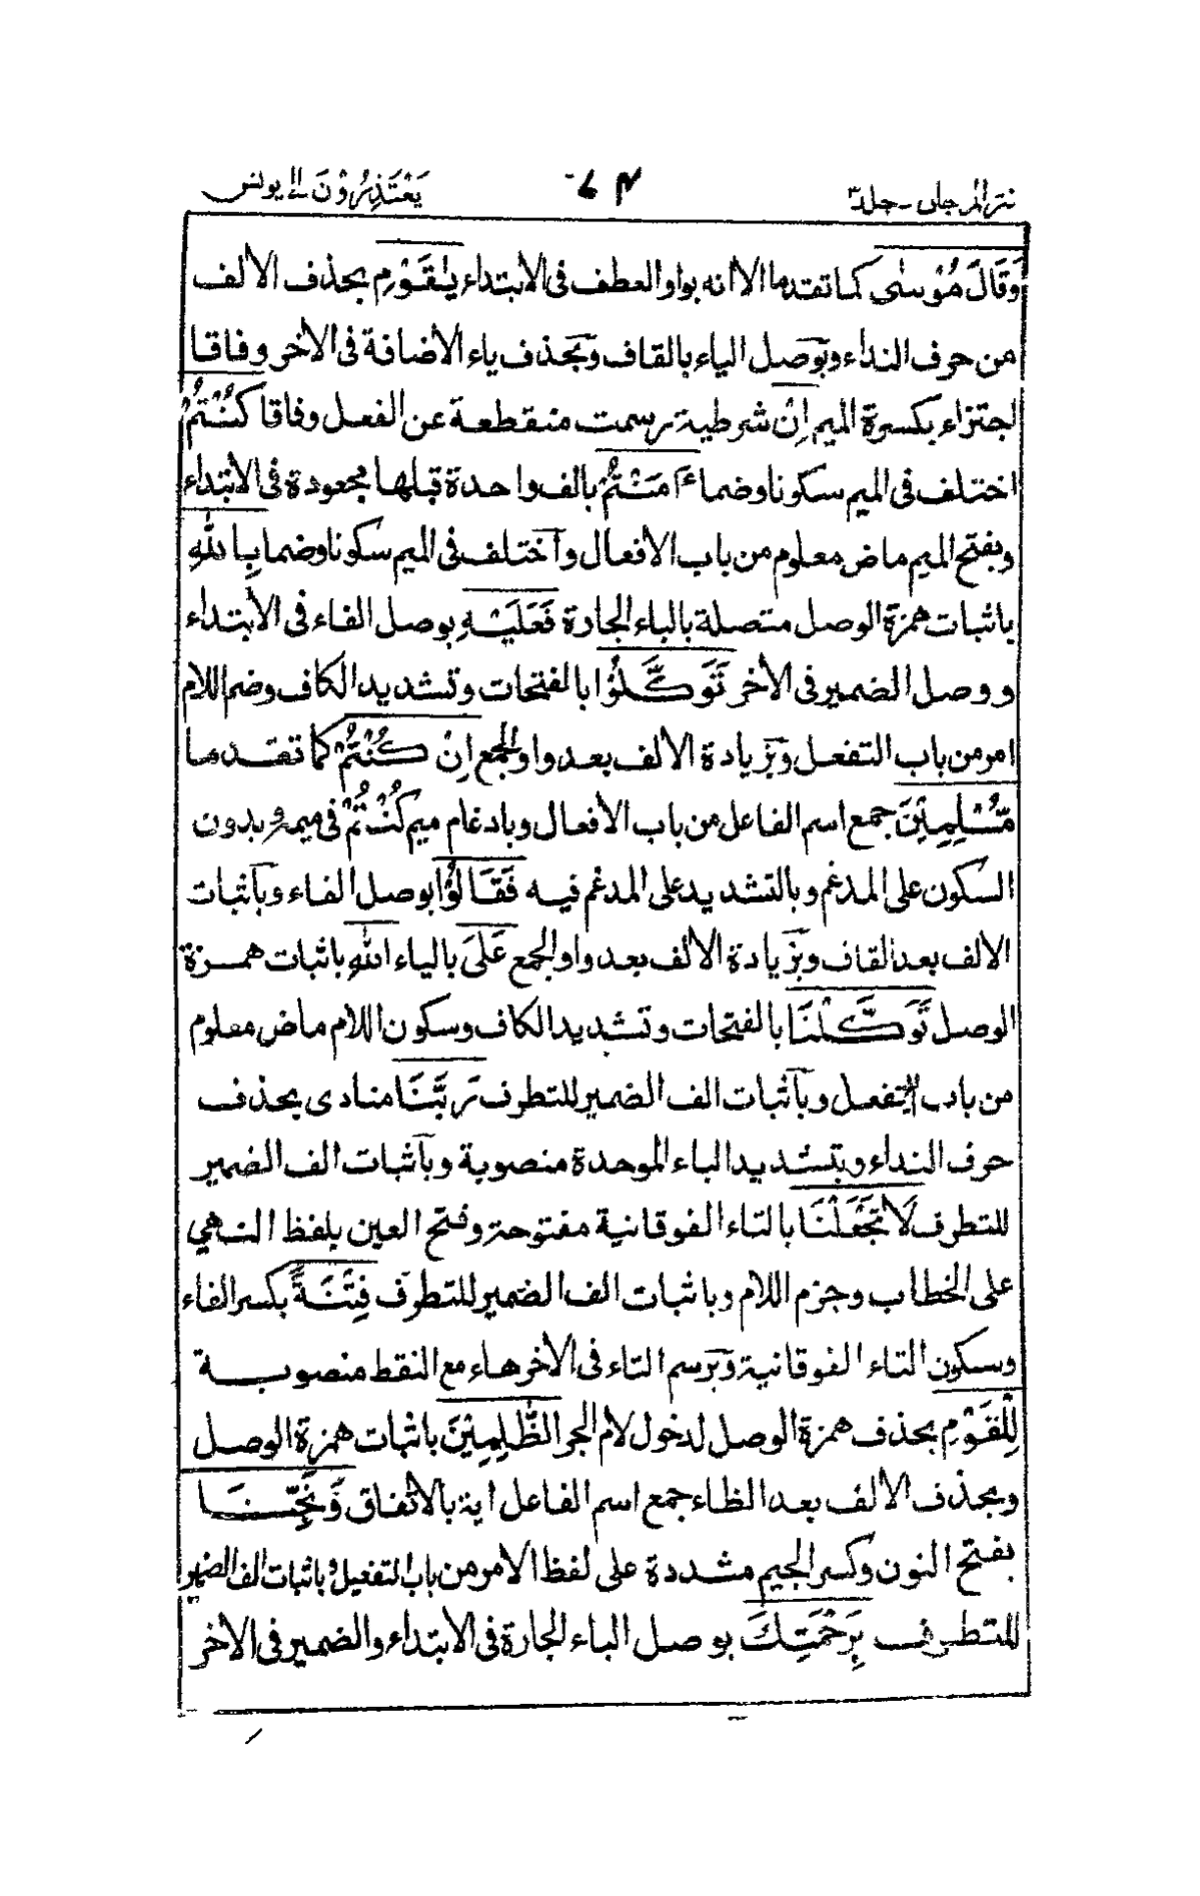 نثر المرجان - جلد ٣
٦٤
يَعْتَذِرُوْنَ ١١ يونس
وَقَالَ مُوْسٰى كما تقدما الا انه بواو العطف فى الابتداء يٰقَوْمِ بحذف الالف
من حرف النداء وبوصل الياء بالقاف وبحذف ياء الاضافة فى الاخر وفاقا
اجتزاء بكسرة الميم اِنْ شرطية رسمت منقطعة عن الفعل وفاقا كُنْتُمْ
اختلف فى الميم سكونا وضما ءَامَنْتُمْ بالف واحدة قبلها مجعودة فى الابتداء
وبفتح الميم ماض معلوم من باب الافعال واختلف فى الميم سكونا وضما بِاللّٰهِ
باثبات همزة الوصل متصلة بالباء الجارة فَعَلَيْهِ بوصل الفاء فى الابتداء
ووصل الضمير فى الاخر تَوَكَّلُوْا بالفتحات وتشديد الكاف وضم اللام
امر من باب التفعل وبزيادة الالف بعد واو الجمع اِنْ كُنْتُمْ كما تقدما
مُّسْلِمِيْنَ جمع اسم الفاعل من باب الافعال وبادغام ميم كُنْتُمْ فى ميمه وبدون
السكون على المدغم وبالتشديد على المدغم فيه فَقَالُوْا بوصل الفاء وباثبات
الالف بعد القاف وبزيادة الالف بعد واو الجمع عَلَى بالياء اللّٰهِ باثبات همزة
الوصل تَوَكَّلْنَا بالفتحات وتشديد الكاف وسكون اللام ماض معلوم
من باب التفعل وباثبات الف الضمير للتطرف رَبَّنَا منادى بحذف
حرف النداء وبتشديد الباء الموحدة منصوبة وباثبات الف الضمير
للتطرف لَا تَجْعَلْنَا بالتاء الفوقانية مفتوحة وفتح العين بلفظ النهي
على الخطاب وجزم اللام وباثبات الف الضمير للتطرف فِتْنَةً بكسر الفاء
وسكون التاء الفوقانية وبرسم التاء فى الاخر هاء مع النقط منصوبة
لِّلْقَوْمِ بحذف همزة الوصل لدخول لام الجر الظّٰلِمِيْنَ باثبات همزة الوصل
وبحذف الالف بعد الظاء جمع اسم الفاعل اية بالاتفاق وَنَجِّنَا
بفتح النون وكسر الجيم مشددة على لفظ الامر من باب التفعيل وباثبات الف الضمير
للتطرف بِرَحْمَتِكَ بوصل الباء الجارة فى الابتداء والضمير فى الاخر